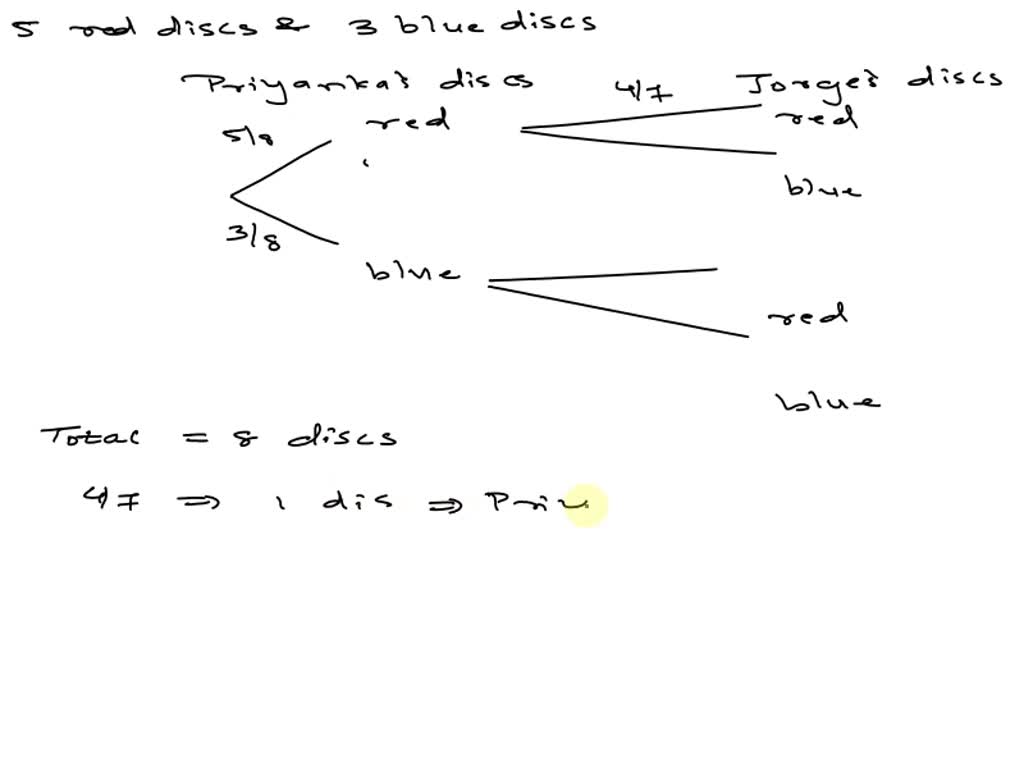 5 red discs & 3 blue discs
Priyanka's discs 4/7 Jorge's discs
5/8 red red
blue
3/8
blue
red
blue
Total = 8 discs
4/7 ⇒ 1 dis ⇒ Priy